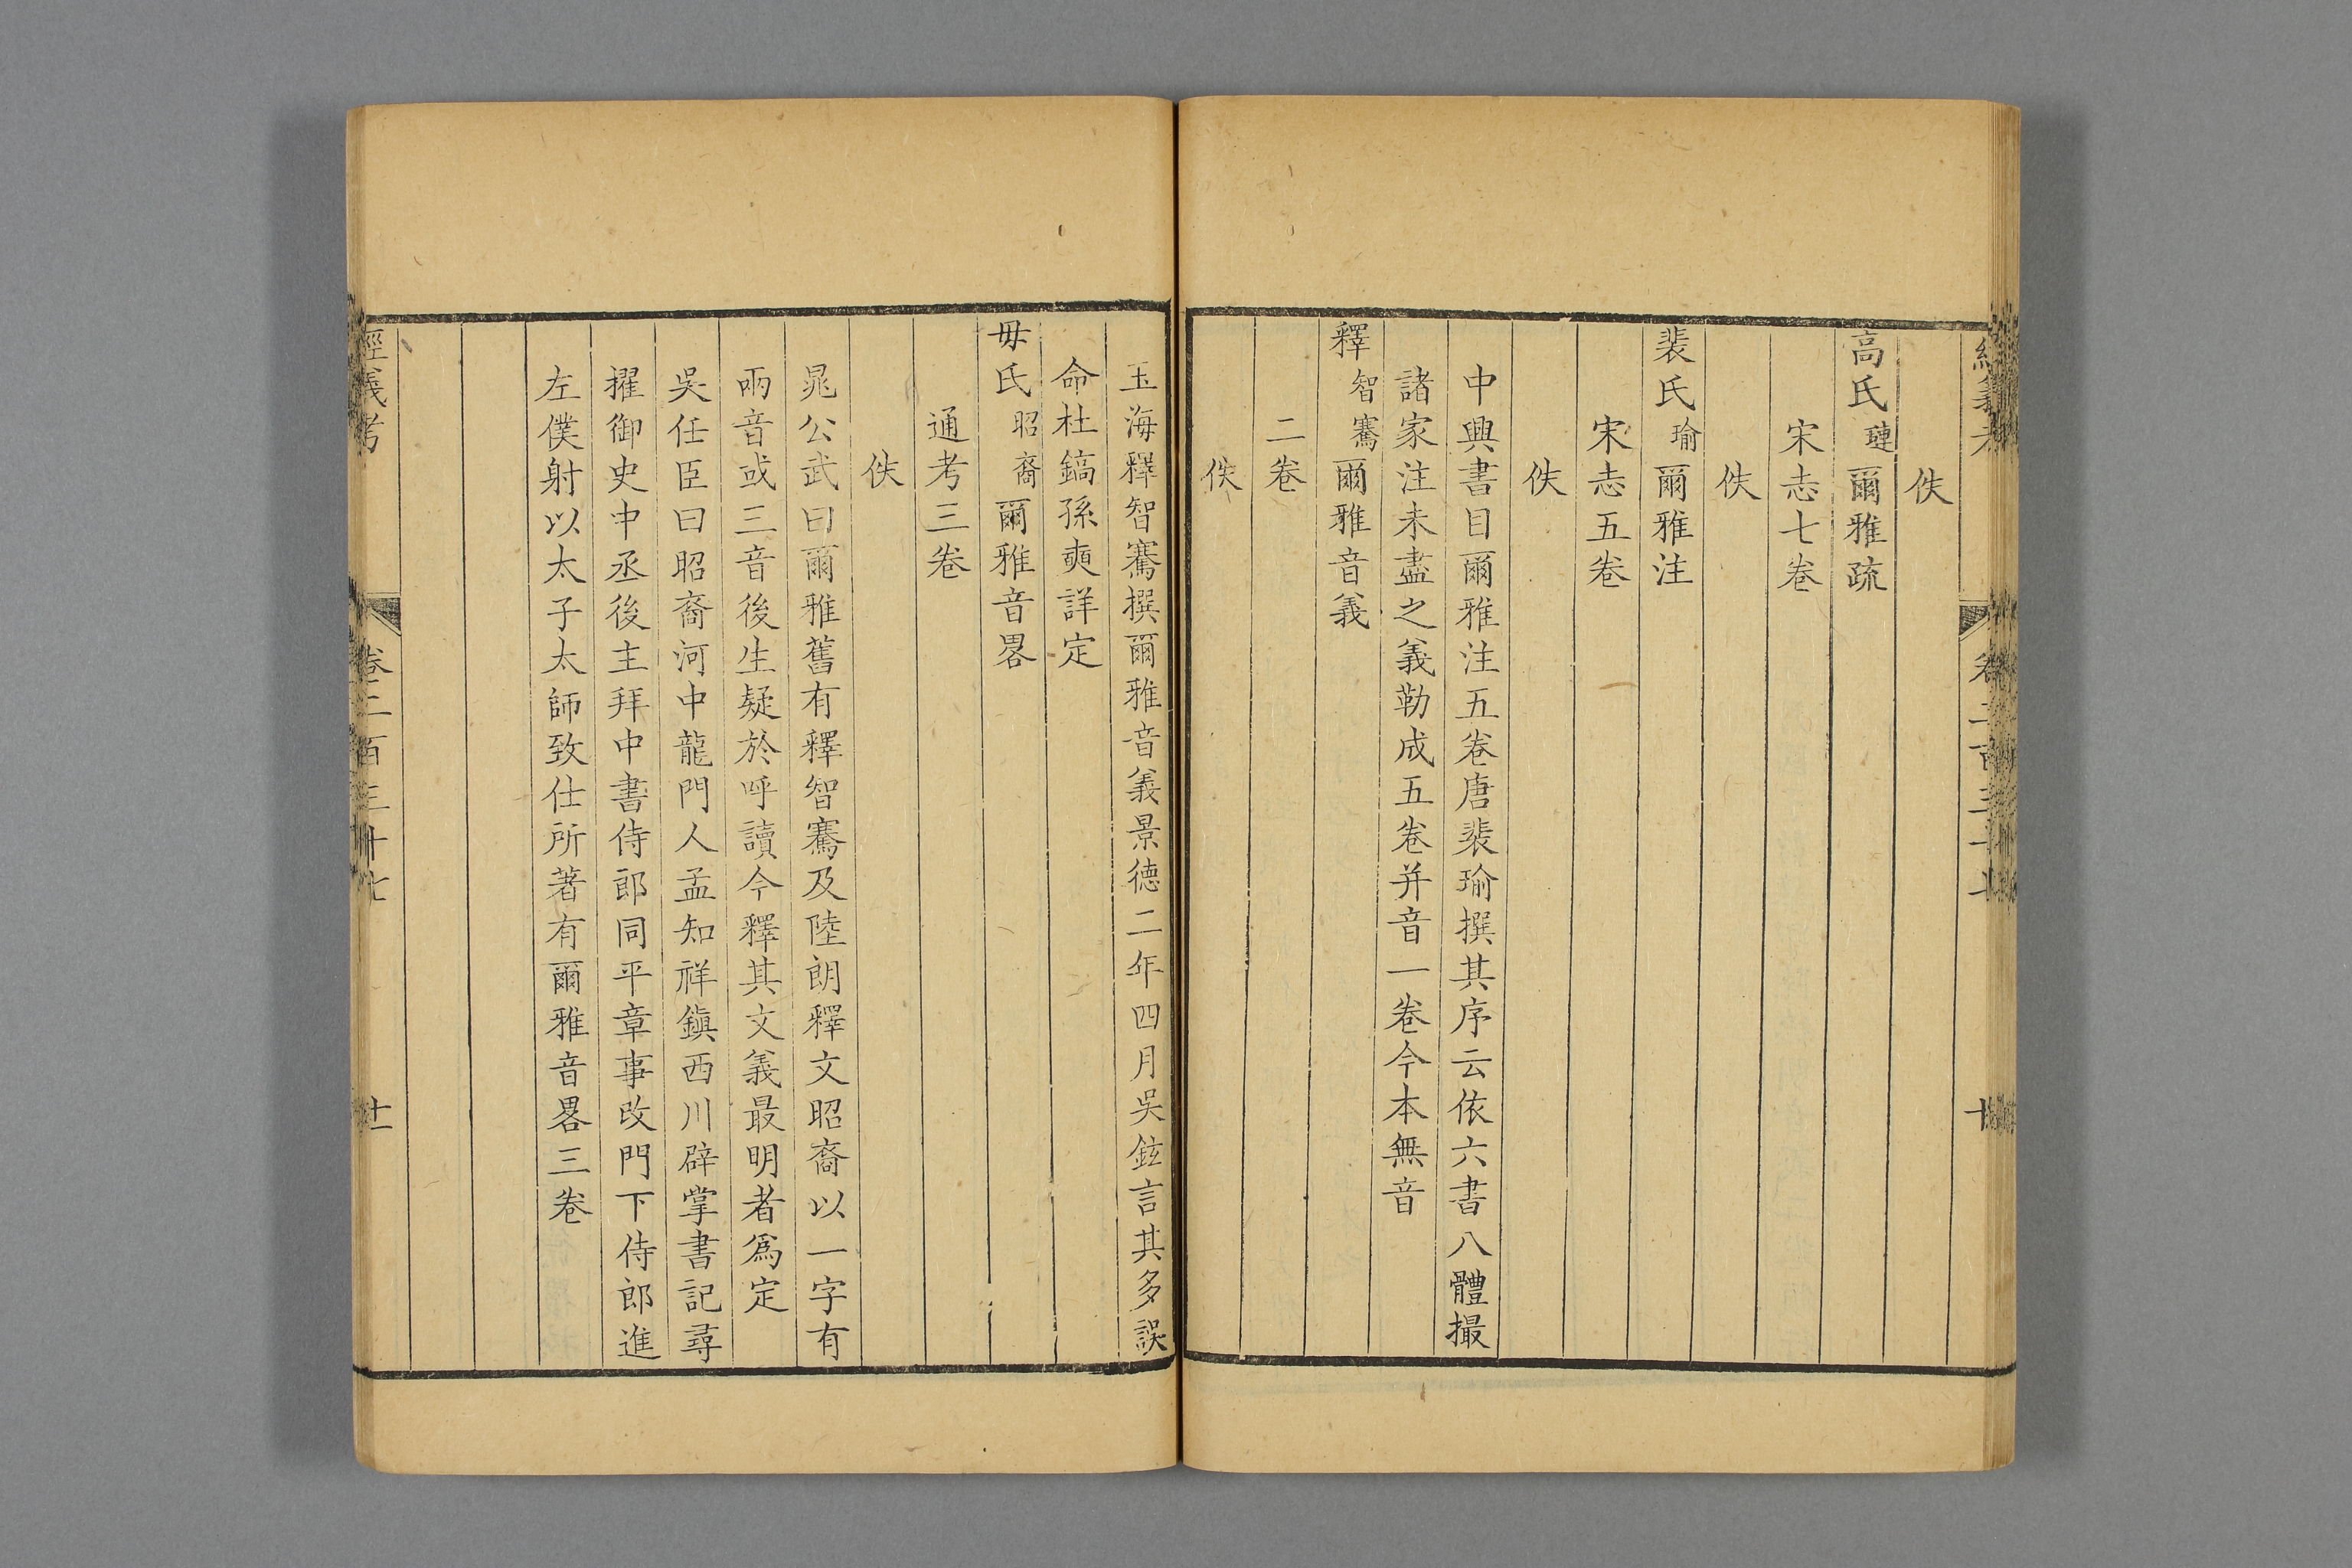 佚
高氏璉爾雅疏
宋志七卷
佚
裴氏瑜爾雅注
宋志五卷
佚
中興書目爾雅注五卷唐裴瑜撰其序云依六書八體撮
諸家注未盡之義勒成五卷并音一卷今本無音
釋智騫爾雅音義
二卷
佚
玉海釋智騫撰爾雅音義景德二年四月吳鉉言其多誤
命杜鎬孫奭詳定
毋氏昭裔爾雅音畧
通考三卷
佚
晁公武曰爾雅舊有釋智騫及陸朗釋文昭裔以一字有
兩音或三音後生疑於呼讀今釋其文義最明者爲定
吳任臣曰昭裔河中龍門人孟知祥鎮西川辟掌書記尋
擢御史中丞後主拜中書侍郎同平章事改門下侍郎進
左僕射以太子太師致仕所著有爾雅音畧三卷
經義考
卷二百三十七
十一